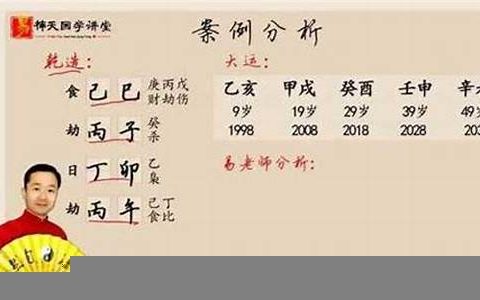 易 梓天国学讲堂
案例分析
乾造：
食 己巳 庚丙戊
财劫伤
劫 丙子 癸
杀
日 丁卯 乙
枭
劫 丙午 己丁
食比
大运：
乙亥 甲戌 癸酉 壬申
9岁 19岁 29岁 39岁 49岁
1998 2008 2018 2028
易老师分析：